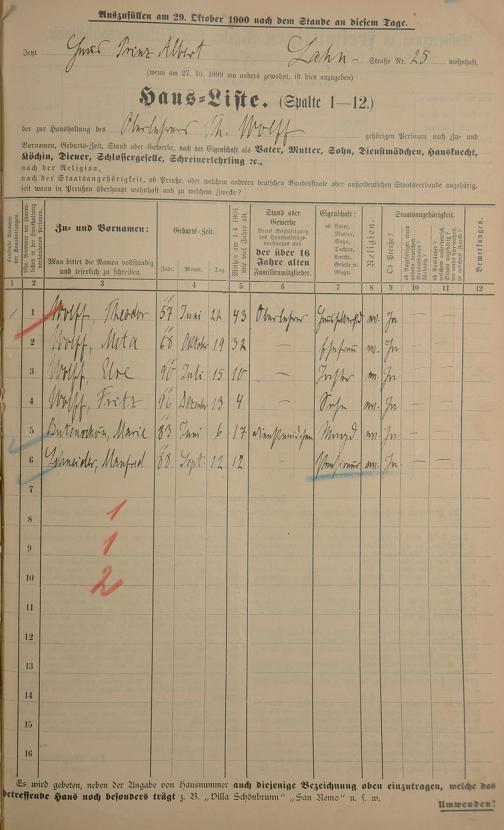 Auszufüllen am 29. Oktober 1900 nach dem Stande an diesem Tage.
Jetzt Haus Prinz Albert Lahn- Straße Nr. 25 wohnhaft.
(wenn am 27. 10. 1899 wo anders gewohnt, ist dies anzugeben)
Haus-Liste. (Spalte 1—12.)
der zur Haushaltung des Oberlehrers Th. Wolff gehörigen Personen nach Zu- und
Vornamen, Geburts-Zeit, Stand oder Gewerbe, nach der Eigenschaft als Vater, Mutter, Sohn, Dienstmädchen, Hausknecht,
Köchin, Diener, Schlossergeselle, Schreinerlehrling ec.,
nach der Religion,
nach der Staatsangehörigkeit, ob Preuße, oder welchem anderen deutschen Bundesstaate oder außerdeutschen Staatsverbande angehörig,
seit wann in Preußen überhaupt wohnhaft und zu welchem Zwecke?
Zu- und Vornamen:
Man bittet die Namen vollständig
und leserlich zu schreiben.
Geburts-Zeit.
Jahr. Monat. Tag.
Stand oder
Gewerbe
der über 16
Jahre alten
Familienmitglieder.
Eigenschaft:
ob Vater,
Mutter,
Sohn,
Tochter,
Magd.
Religion.
Staatsangehörigkeit.
Ob Preuße?
Bemerkungen.
1 2 3 4 5 6 7 8 9 10 11 12
1 Wolff, Theodor 57 Juni 22 43 Oberlehrer ev. Ja — —
2 Wolff, Meta 68 Oktober 19 32 — Ehefrau ev. Ja — —
3 Wolff, Else 90 Juli 15 10 — Tochter ev. Ja — —
4 Wolff, Fritz 96 Dezember 13 4 — Sohn ev. Ja — —
5 Marie 83 Juni 6 17 Dienstmädchen Magd ev. Ja — —
6 Schneider, Manfred 88 Sept. 12 12 Pensionär ev. Ja — —
7
8 1
9 1
10 2
11
12
13
14
15
16
Es wird gebeten, neben der Angabe von Hausnummer auch diejenige Bezeichnung oben einzutragen, welche das
betreffende Haus noch besonders trägt z. B. „Villa Schönbrunn" „San Remo" u. s. w.
Umwenden!